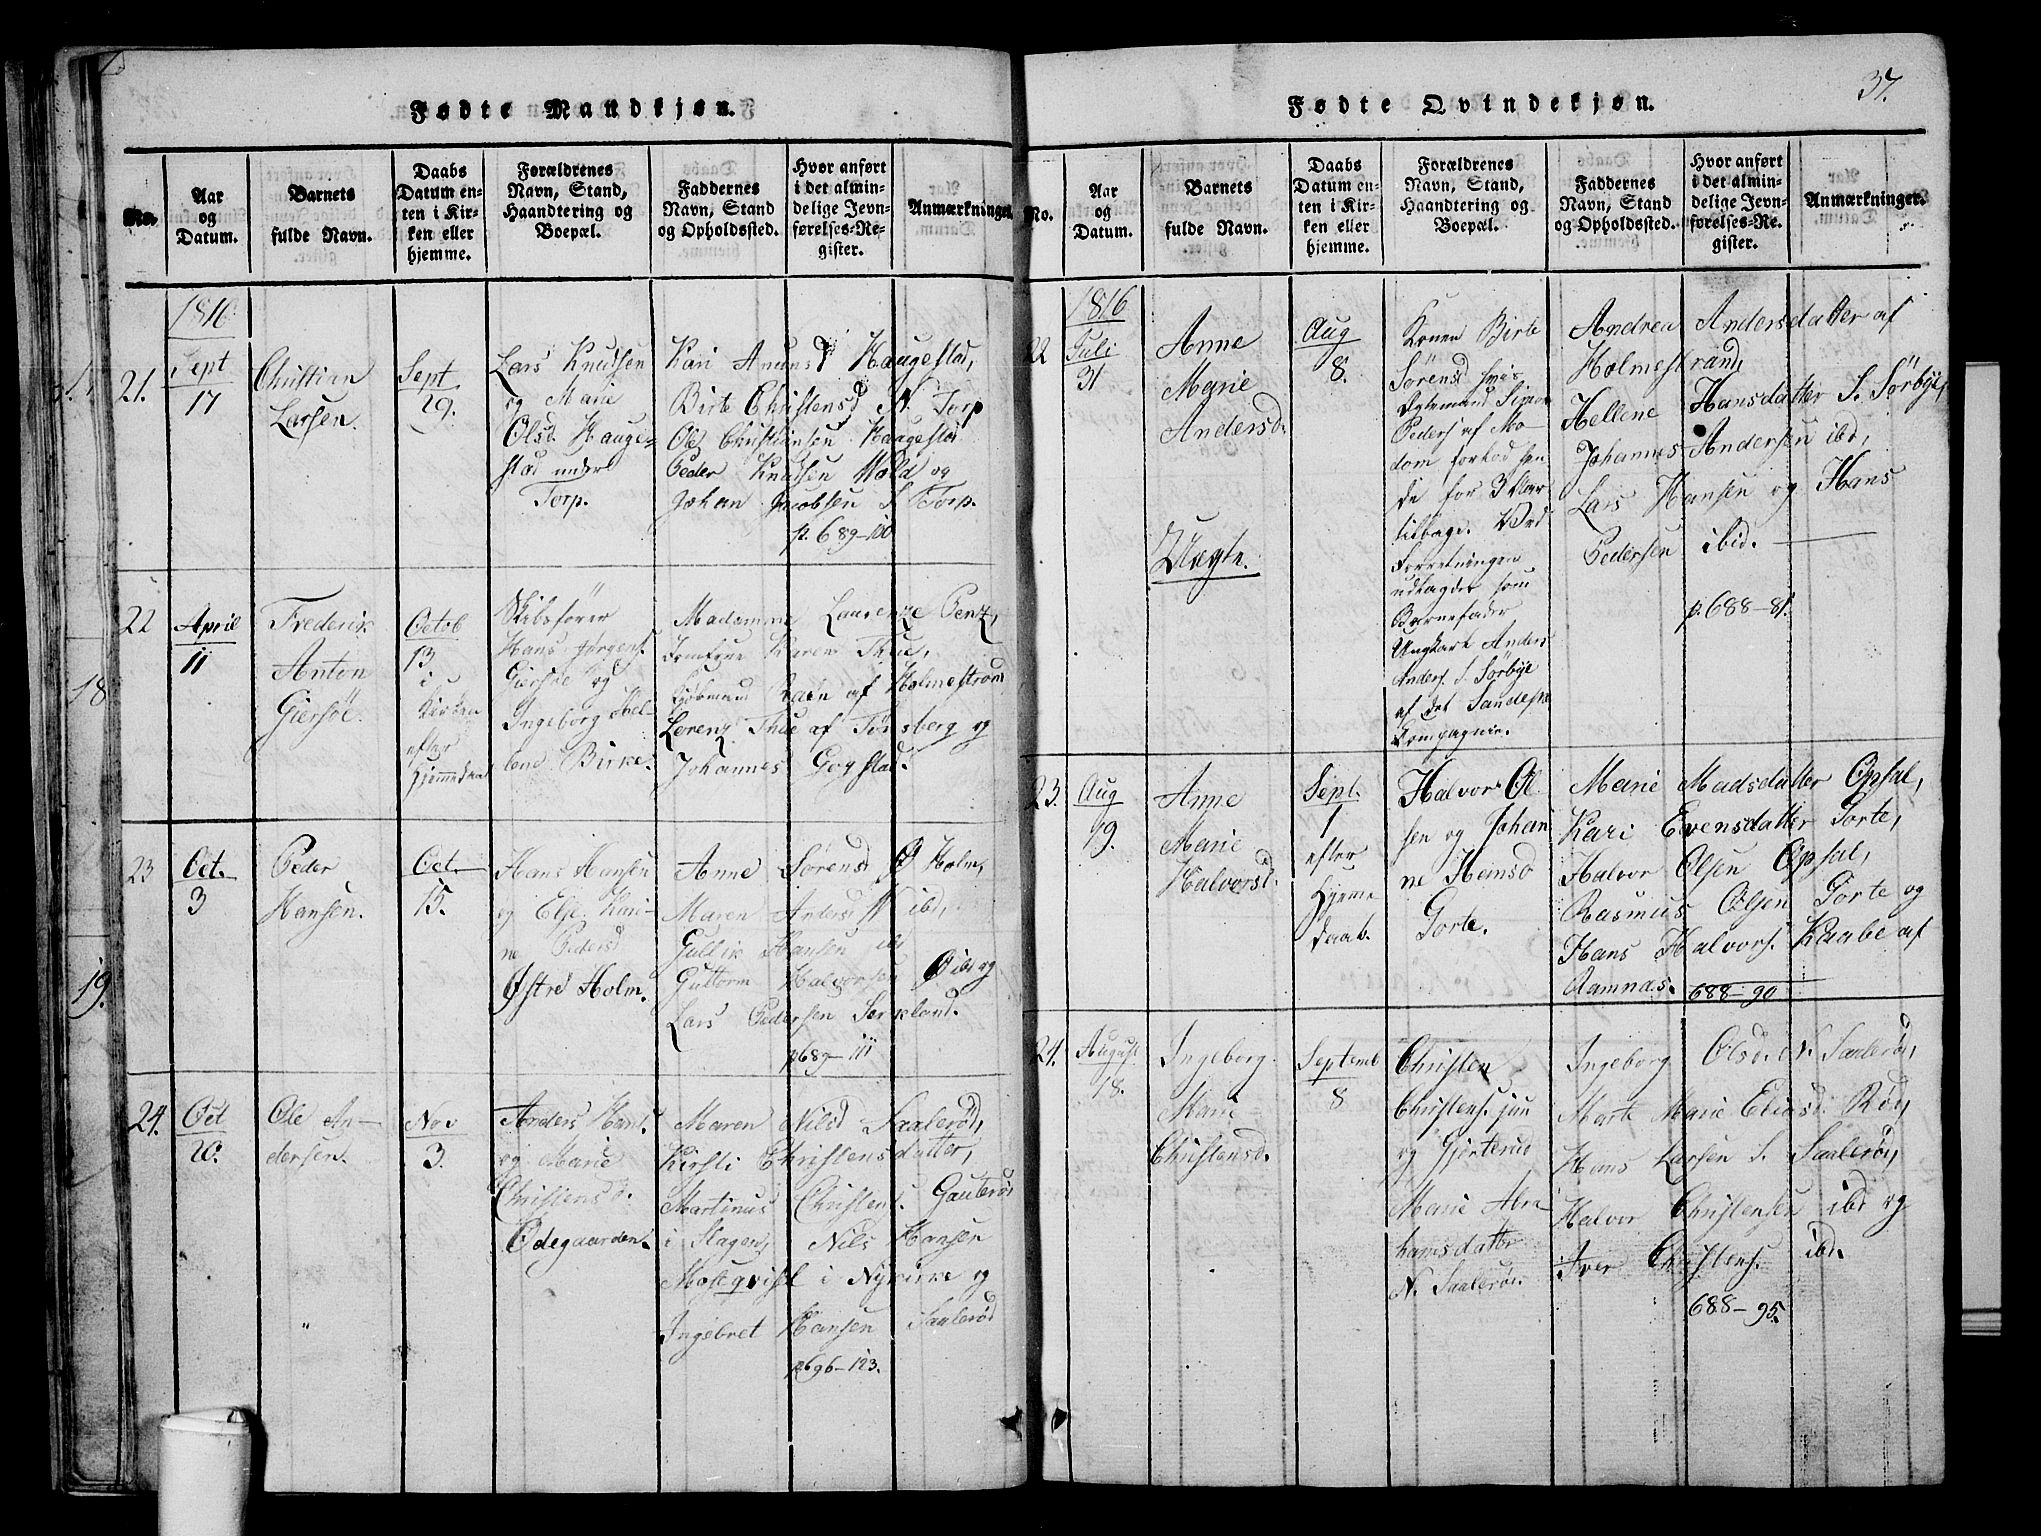 Fødte Mandkjøn.
No.
Aar
og
Datum.
Barnets
fulde Navn.
Daabs
Datum en-
ten i Kir-
ken eller
hjemme.
Forældrenes
Navn, Stand,
Haandtering og
Boepæl.
Faddernes
Navn, Stand
og Opholdssted.
Hvor anført
i det almin-
delige Jevn-
førelses-Re-
gister.
Anmærkninger.
21.
1816
Sept
17
Christian
Larsen.
Sept
29.
Lars Knudsen
og Marie
Olsd. Hauge-
stad under
Torp.
Kari Amunsd Haugestad,
Birte Christensd N. Torp
Ole Christiansen Haugestad
Peder Knudsen Wold og
Johan Jacobsen S. Torp.
p. 689-110
22
April
11
Frederik
Anton
Giersöe.
Octob
13.
i
Kirken
efter
Hjemmedaab
Skibsfører
Hans Jørgens.
Giersöe og
Ingeborg Hel-
lene Birke.
Madamme Laurenze Penz,
Jomfrue Karen Thue,
Kjøbmand Raen af Holmestrand
Lorenz Thue af Tønsberg og
Johannes Gogstad.
23
Oct.
3
Peder
Hansen.
Oct.
15.
Hans Hansen
og Else Kari-
ne Pedersd
Østre Holm.
Anne Sørensd Ø Holm,
Maren Andersd N ibd,
Gullik Hansen ibd
Guttorm Halvorsen Ø ibd og
Lars Pedersen Serkeland.
p689-111
24.
Oct
20.
Ole An-
dersen.
Nov
3.
Anders Hans.
og Marie
Christensd.
Ødegaarden.
Maren Nilsd Saalerød,
Kirsti Christensdatter,
Martinus Christens. Gauterød
i Slagen, Nils Hansen
Moseqvist i Nykirke og
Ingebret Hansen Saalerød
p696-123.
18
19.
37.
Fødte Qvindekjøn.
No.
Aar
og
Datum.
Barnets
fulde Navn.
Daabs
Datum en-
ten i Kir-
ken eller
hjemme.
Forældrenes
Navn, Stand,
Haandtering og
Boepæl.
Faddernes
Navn, Stand
og Opholdssted.
Hvor anført
i det almin-
delige Jevn-
førelses-Re-
gister.
Anmærkninger.
22
1816
Juli
31
Anne
Marie
Andersd.
Uægte.
Aug
8.
Konen Birte
Sørensd hvis
Egtemand Simon
Peders af Mo-
dom forlod hen-
de for 3 Aar
tilbage. Ved
Forretningen
udlagdes som
Barnefader
Ungkarl Anders
Anders. S. Sörbye
af det Sandeske
Compagnie.
Andrea Andersdatter af
Holmestrand,
Hellene Hansdatter S. Sörbye,
Johannes Andersen ibd,
Lars Hansen og Hans
Pedersen ibid.
p.688-81.
23.
Aug
19.
Anne
Marie
Halvorsd.
Sept.
1
efter
Hjemme
daab.
Halvor Ol-
sen og Johan-
ne Hansd
Gorte.
Marie Madsdatter Opsal,
Kari Evensdatter Gorte,
Halvor Olsen Opsal,
Rasmus Olsen Gorte og
Hans Halvors. Raabe af
Ramnas.
688-90
24.
August
18.
Ingeborg
Marie
Christensd.
Septemb
8
Christen
Christens. jun
og Gjerterud
Marie Abra-
hamsdatter
N. Saalerød.
Ingeborg Olsd. N. Saalerød,
Marte Marie Eliasd. Röd,
Hans Larsen S. Saalerød,
Halvor Christensen ibd og
Iver Christens. ibd.
688-95.